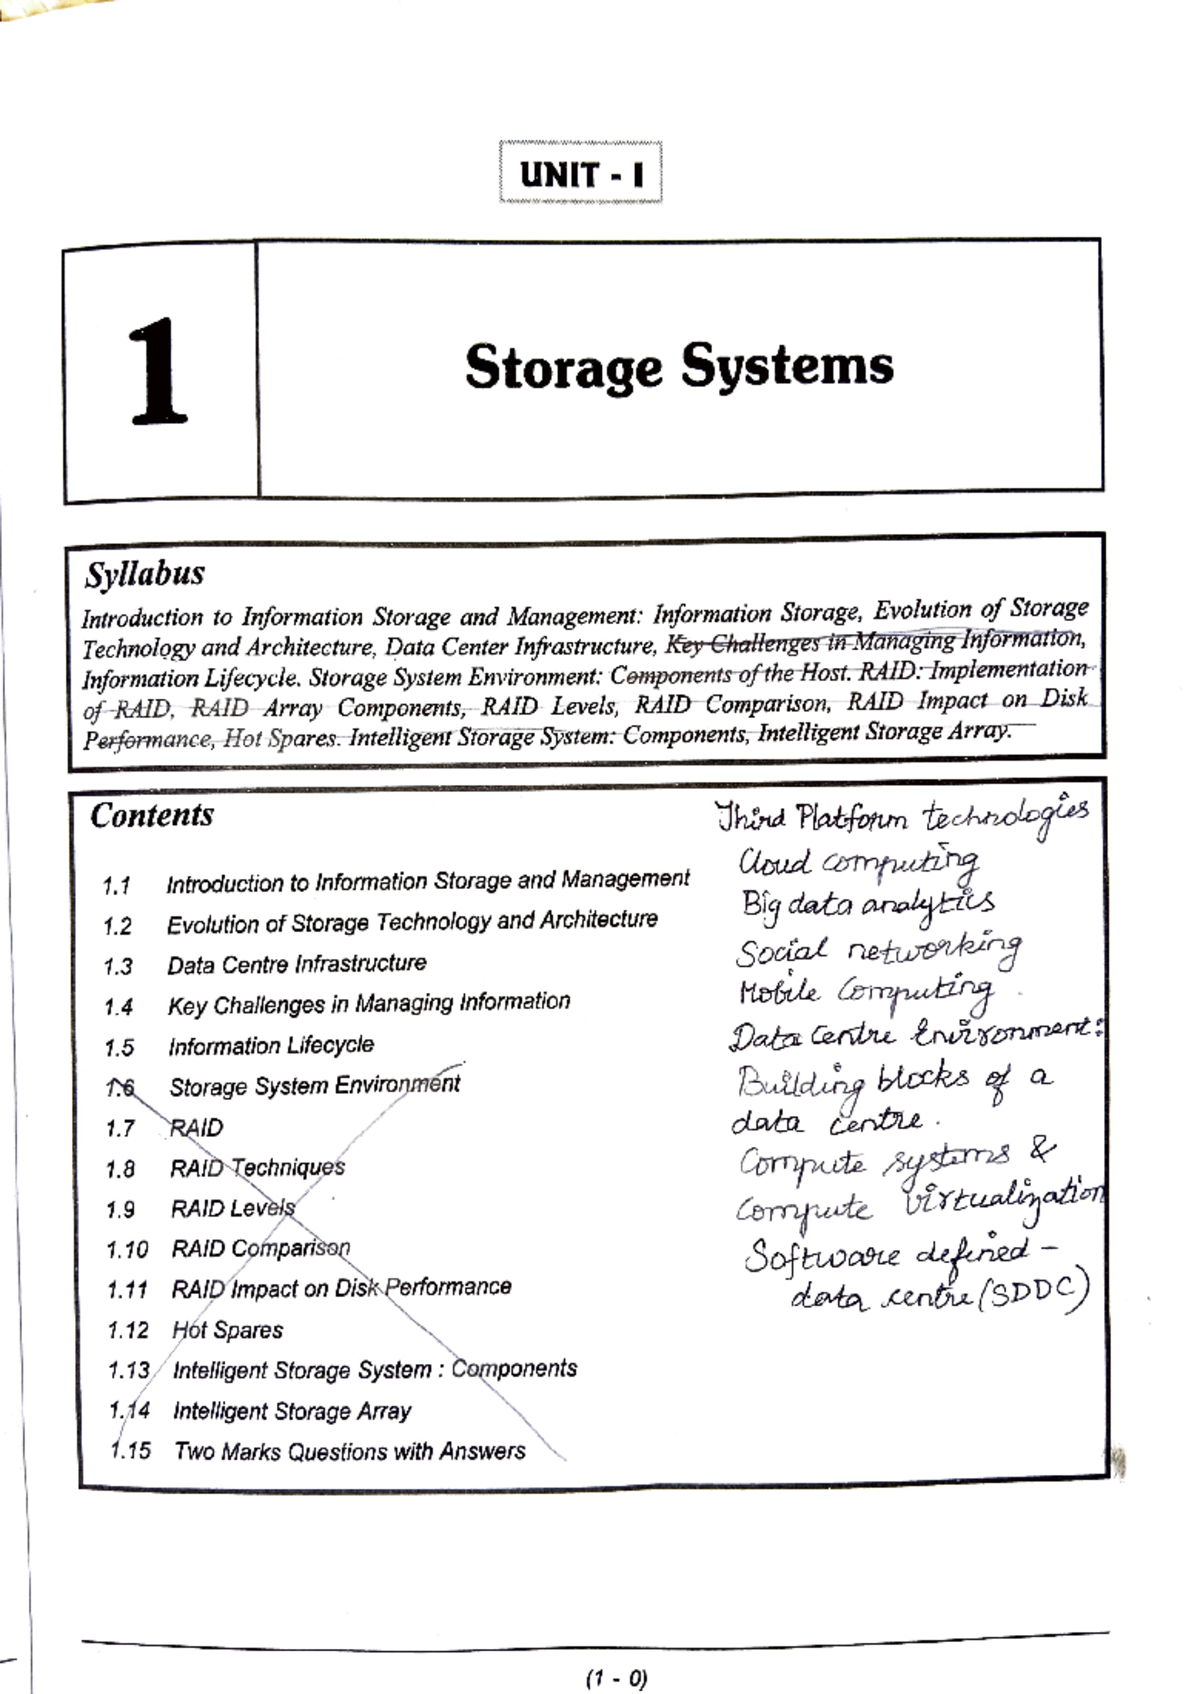 UNIT - I
1
Storage Systems
Syllabus
Introduction to Information Storage and Management: Information Storage, Evolution of Storage
Technology and Architecture, Data Center Infrastructure, Key Challenges in Managing Information,
Information Lifecycle. Storage System Environment: Components of the Host. RAID: Implementation
of RAID, RAID Array Components, RAID Levels, RAID Comparison, RAID Impact on Disk
Performance, Hot Spares. Intelligent Storage System: Components, Intelligent Storage Array.
Contents
1.1 Introduction to Information Storage and Management
1.2 Evolution of Storage Technology and Architecture
1.3 Data Centre Infrastructure
1.4 Key Challenges in Managing Information
1.5 Information Lifecycle
1.6 Storage System Environment
1.7 RAID
1.8 RAID Techniques
1.9 RAID Levels
1.10 RAID Comparison
1.11 RAID Impact on Disk Performance
1.12 Hot Spares
1.13 Intelligent Storage System : Components
1.14 Intelligent Storage Array
1.15 Two Marks Questions with Answers
Third Platform technologies
Cloud computing
Big data analytics
Social networking
Mobile Computing
Data Centre Environment:
Building blocks of a
data centre.
Compute systems &
Compute virtualization
Software defined -
data centre (SDDC)
(1 - 0)